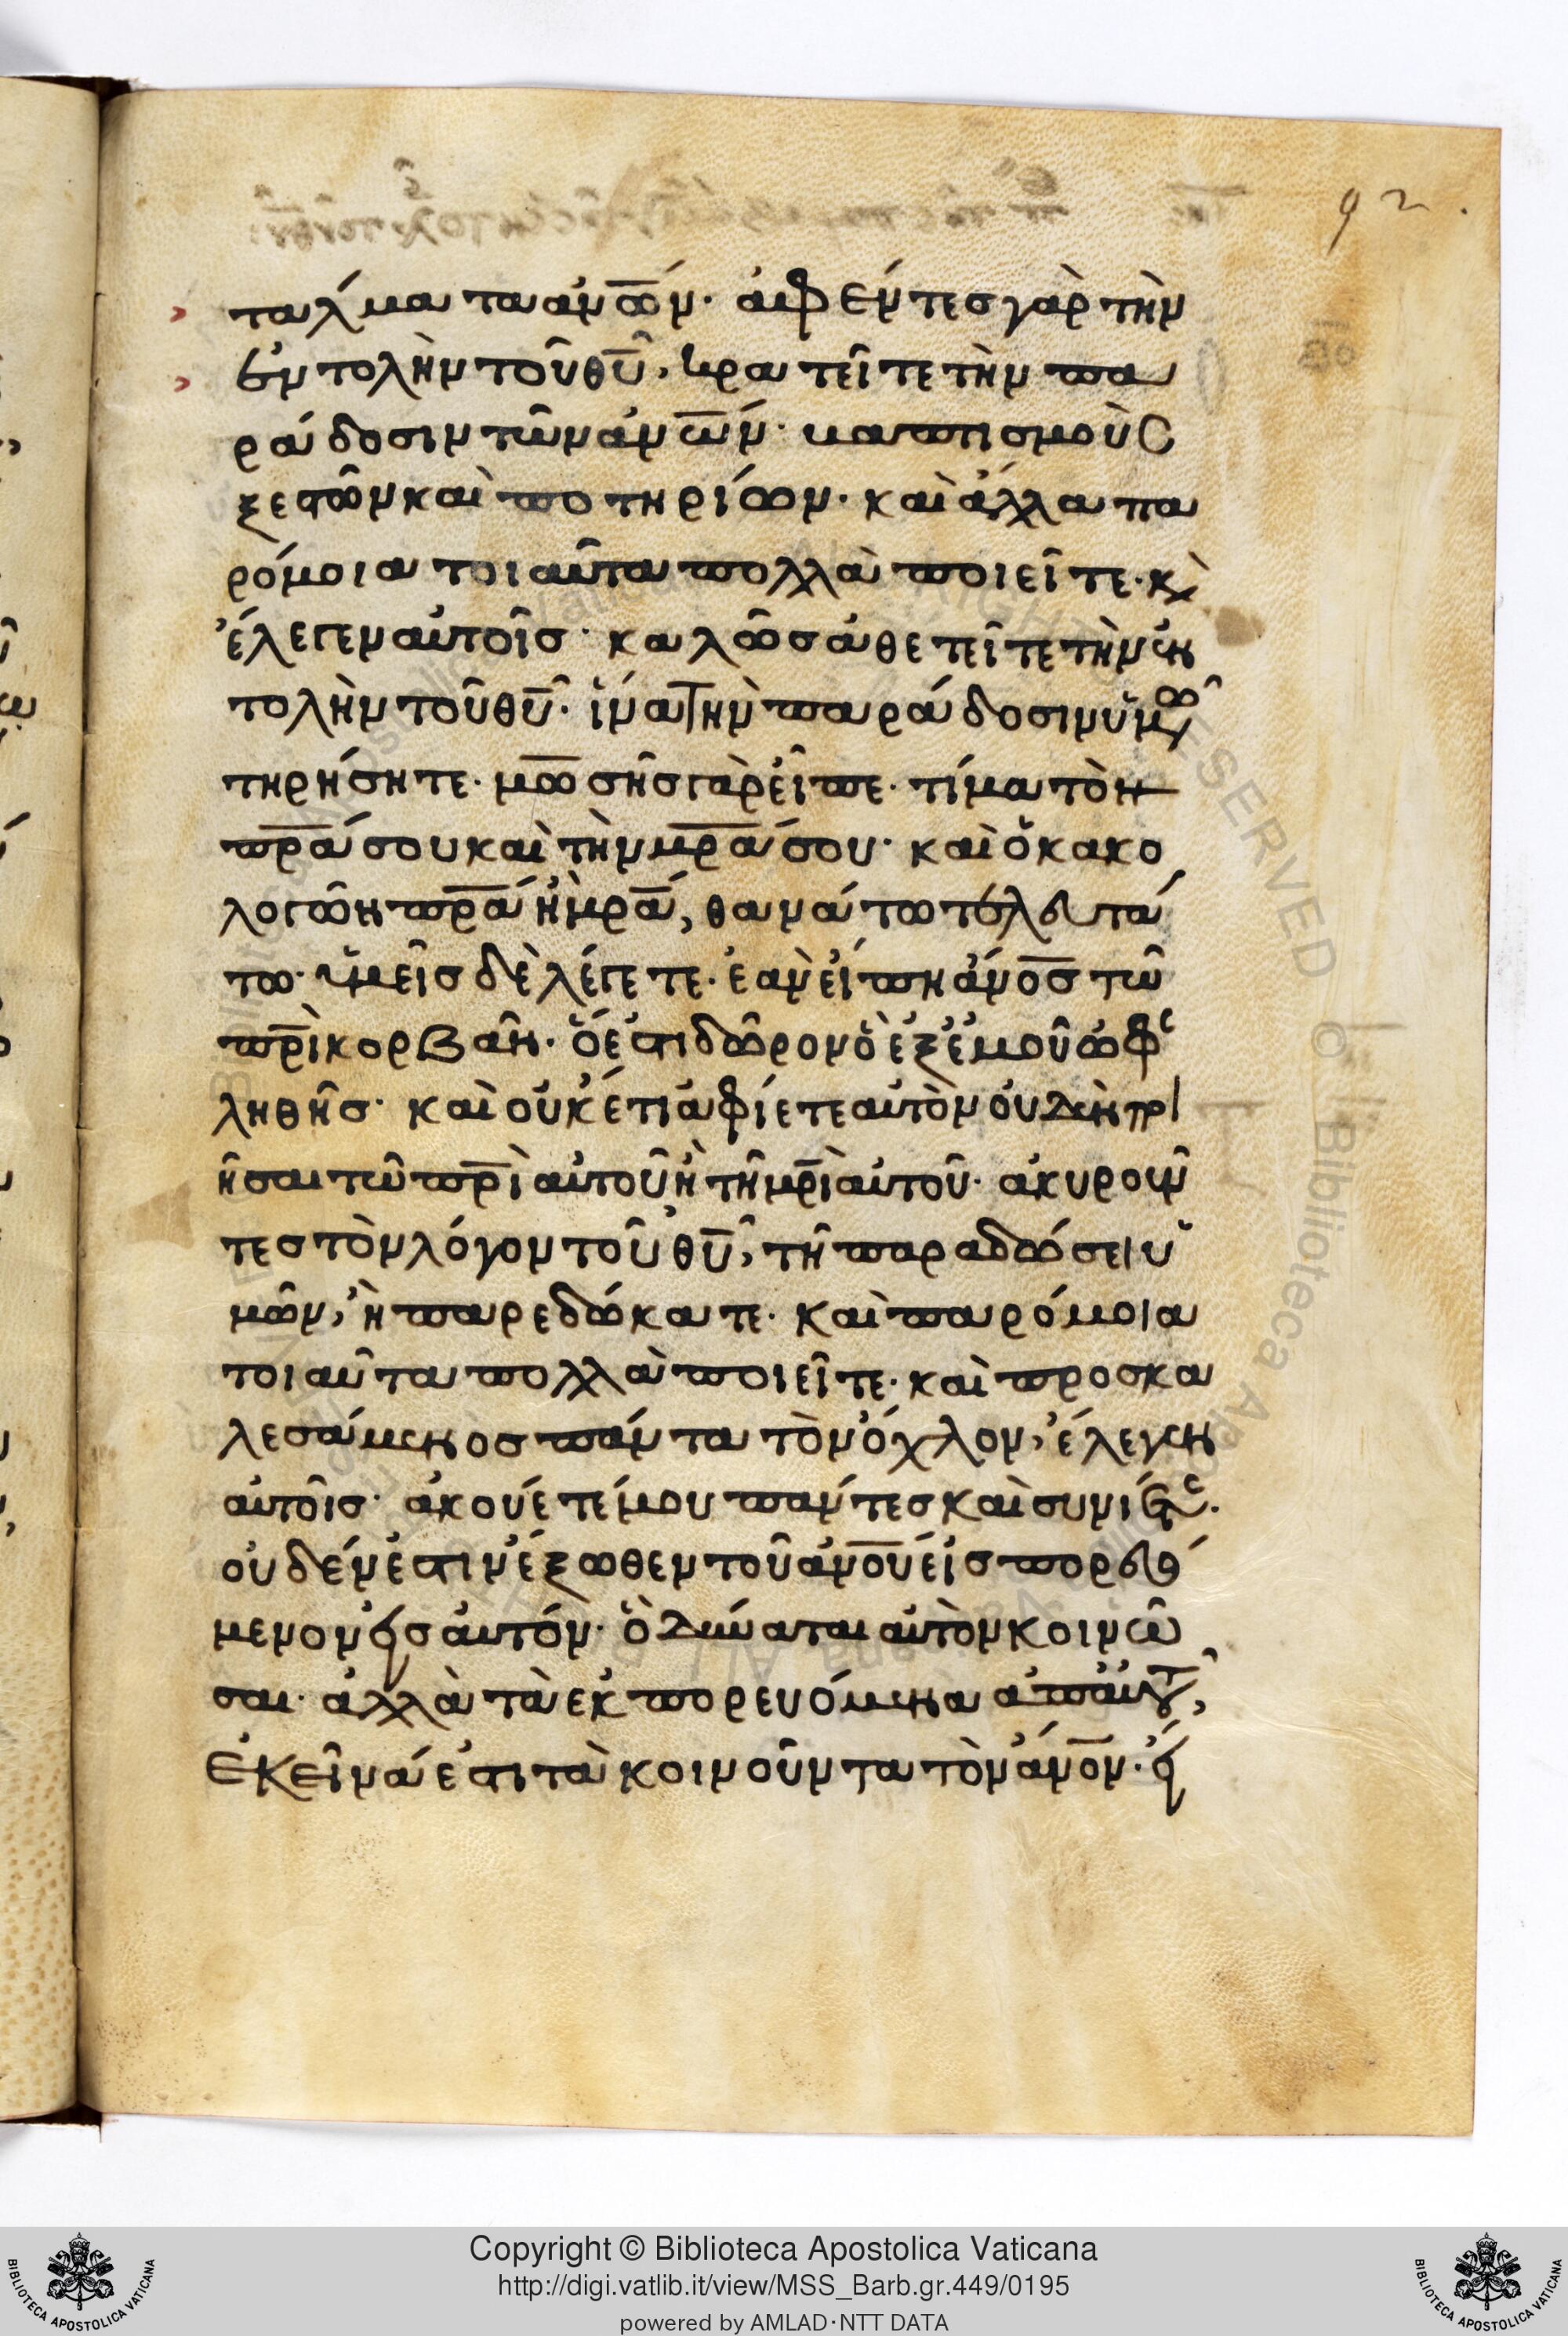 92.
ταλματα ἀνω̅ν· ἀφέντες γὰρ τὴν
ἐντολὴν τοῦ θυ̅, κρατεῖτε τὴν πα
ράδοσιν τῶν ἀνω̅ν· βαπτισμοὺς
ξεστῶν καὶ ποτηρίων· καὶ ἄλλα πα
ρόμοια τοιαῦτα πολλὰ ποιεῖτε· κὶ
ἔλεγεν αὐτοῖς· καλῶς ἀθετεῖτε τὴν ἐν
τολὴν τοῦ θυ̅· ἵνα τὴν παράδοσιν ὑμῶν
τηρήσητε· μω̅σῆς γὰρ εἶπε· τίμα τὸν
πρ̅α σου καὶ τὴν μρ̅α σου· καὶ ὁ κακο
λογῶν πρ̅α ἢ μρ̅α, θανάτω τελευτά
τω· ὑμεῖς δὲ λέγετε· ἐὰν εἴπη ἄνο̅ς τῶ
πρ̅ὶ κορβᾶν· ὅ ἐστι δῶρον ὃ ἐξ ἐμοῦ ὠφε
ληθῆς· καὶ οὐκέτι ἀφίετε αὐτὸν οὐδὲν ποι
ῆσαι τῶ πρ̅ὶ αὐτοῦ ἢ τῆ μρ̅ὶ αὐτοῦ· ἀκυροῦν
τες τὸν λόγον τοῦ θυ̅, τῆ παραδώσει ὑ
μῶν, ἧ παρεδώκατε· καὶ παρόμοια
τοιαῦτα πολλὰ ποιεῖτε· καὶ προσκα
λεσάμενος πάντα τὸν ὄχλον, ἔλεγεν
αὐτοῖς· ἀκούετέ μου πάντες καὶ συνίετε·
οὐδέν ἐστιν ἔξωθεν τοῦ ἀνο̅υ εἰσπορευό
μενον εἰς αὐτόν· ὃ δύναται αὐτὸν κοινῶ
σαι· ἀλλὰ τὰ ἐκπορευόμενα ἀπ' αὐτοῦ,
ἐκεῖνά ἐστι τὰ κοινοῦντα τὸν ἄνο̅ν· εἴ
Copyright © Biblioteca Apostolica Vaticana
http://digi.vatlib.it/view/MSS_Barb.gr.449/0195
powered by AMLAD·NTT DATA
BIBLIOTECA APOSTOLICA VATICANA
BIBLIOTECA APOSTOLICA VATICANA